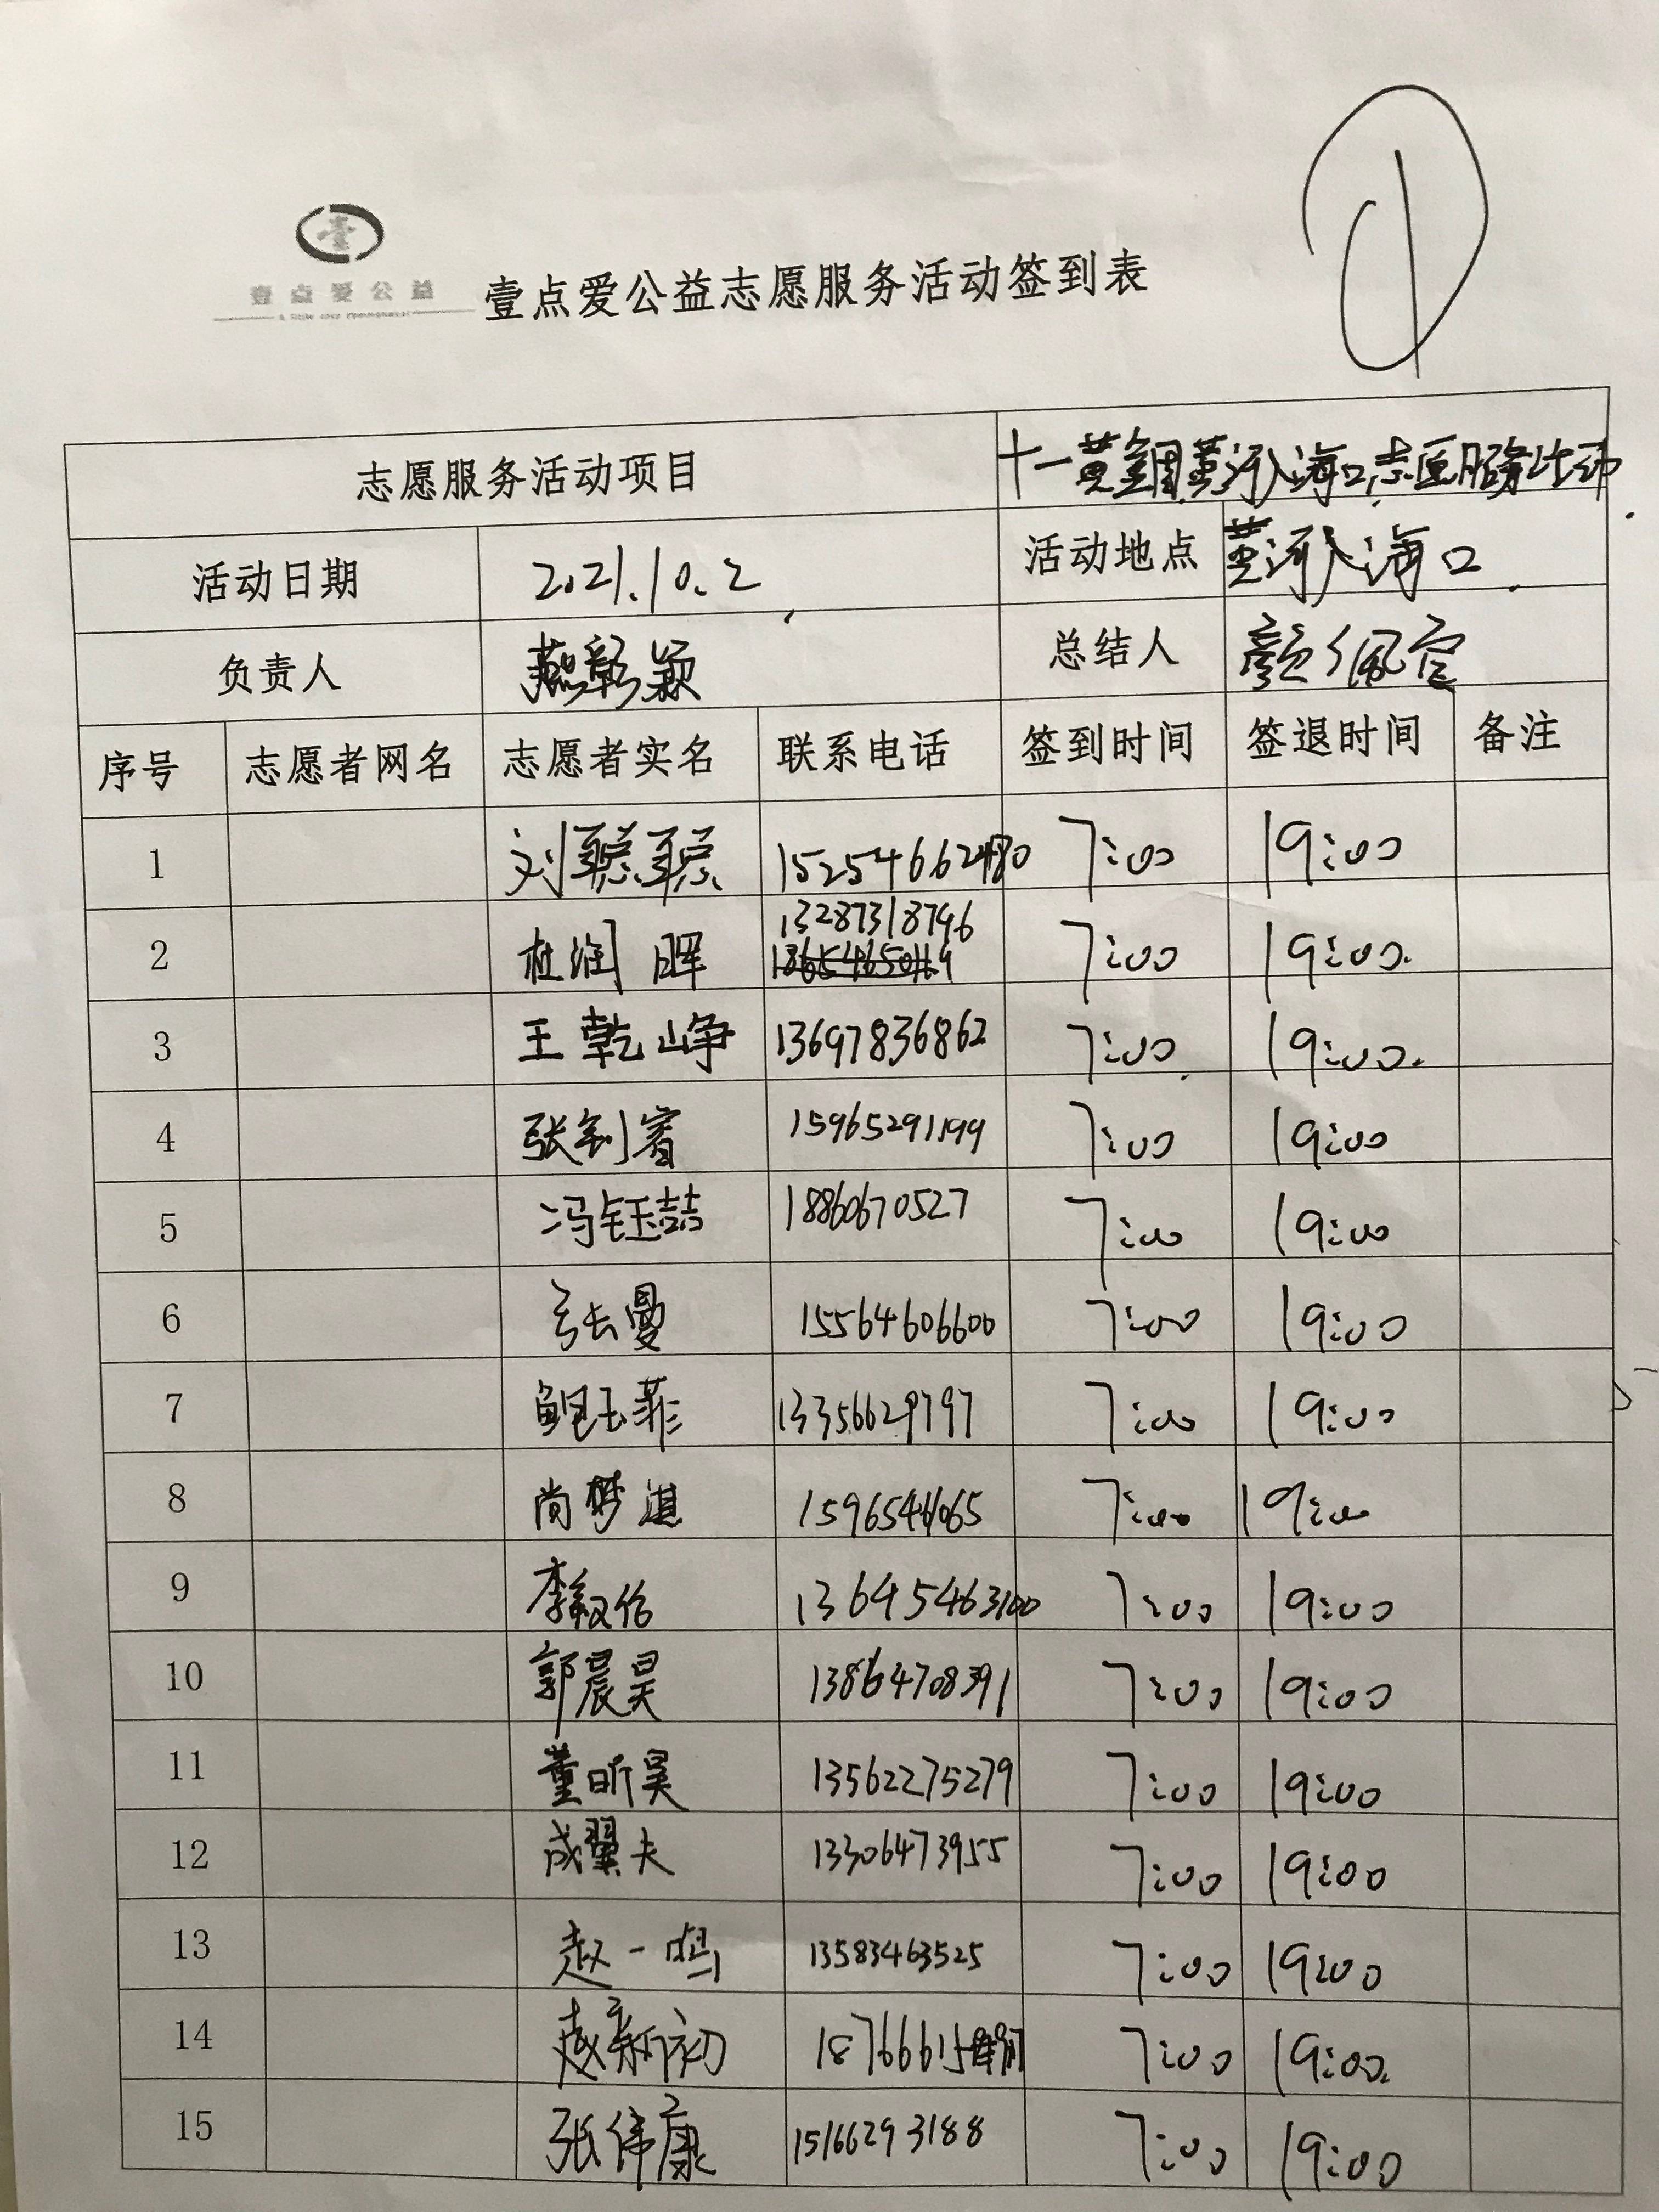 ①
壹
壹点爱公益
壹点爱公益志愿服务活动签到表
志愿服务活动项目 十一黄金周黄河入海口志愿服务活动.
活动日期 2021.10.2 活动地点 黄河入海口.
负责人 燕彩颖 总结人 颜佩官
序号 志愿者网名 志愿者实名 联系电话 签到时间 签退时间 备注
1 刘聪聪 15254662480 7:00 19:00
13287318796
2 杜润晖 7:00 19:00.
3 王乾峥 13697836862 7:00. 19:00.
4 张钊睿 15965291199 7:00 19:00
5 冯钰喆 18860670527 7:00 19:00
6 张曼 15564606600 7:00 19:00
7 鲍玉菲 13356629797 7:00 19:00
8 尚梦淇 7:00 19:00
9 李叙佁 13645463100 7:00 19:00
10 郭晨昊 13864708391 7:00 19:00
11 董昕昊 13562275279 7:00 19:00
12 成翼夫 13306473955 7:00 19:00
13 赵一鸣 13583463525 7:00 19:00
14 赵新初 7:00 19:00.
15 张伟康 15166293188 7:00 19:00